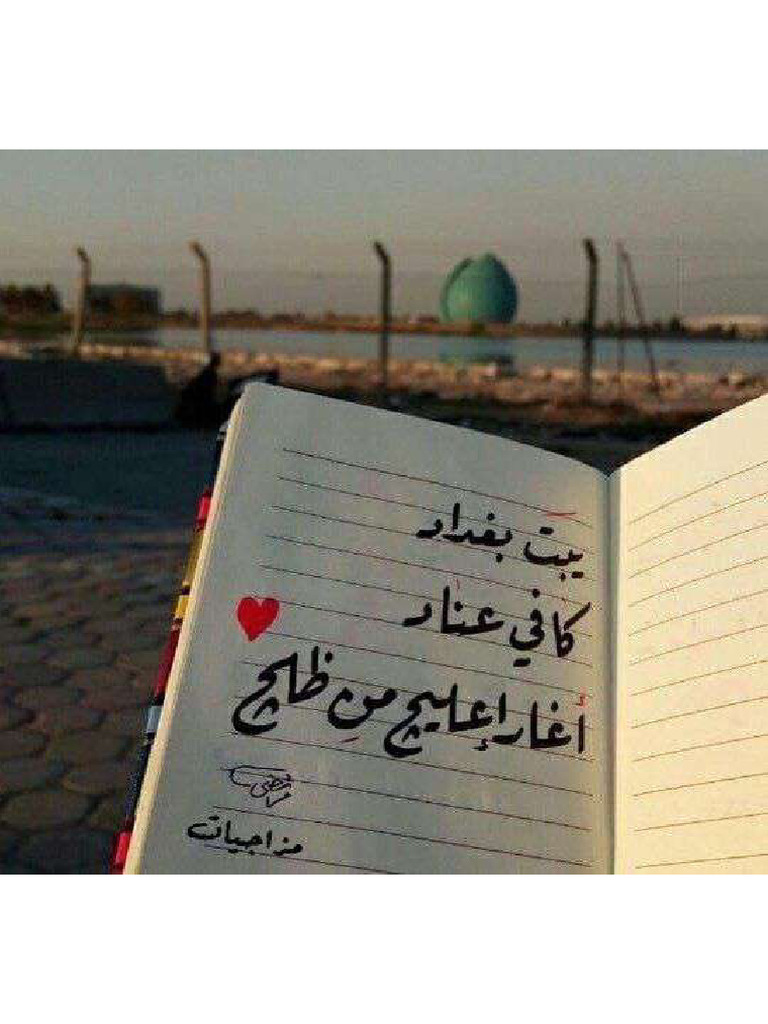 يبت بغداد
كافي عناد
أغار إعليج من ظليج
مرتضى
مزاجيات